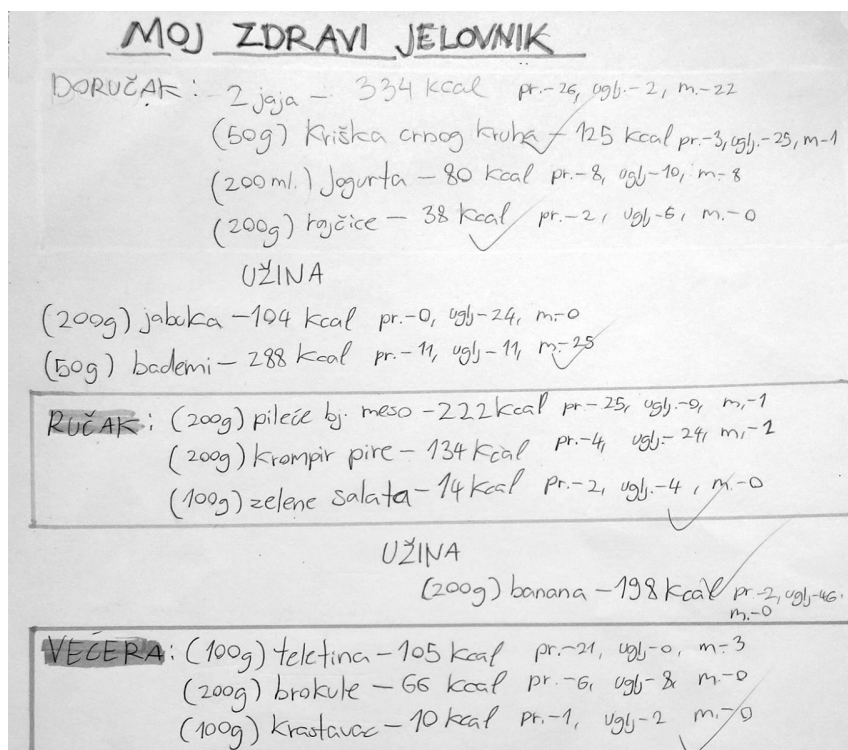 MOJ ZDRAVI JELOVNIK
DORUČAK: 2 jaja - 334 kcal pr.-26, uglj.-2, m.-22
(50g) kriška crnog kruha - 125 kcal pr.-3, uglj.-25, m-1
(200 ml.) Jogurta - 80 kcal pr.-8, uglj-10, m.-8
(200g) rajčice - 38 kcal pr.-2, uglj-6, m.-0
UŽINA
(200g) jabuka - 104 kcal pr.-0, uglj-24, m.-0
(50g) bademi - 288 kcal pr.-11, uglj-11, m.-25
RUČAK: (200g) pileće bj. meso - 222 kcal pr.-25, uglj.-0, m.-1
(200g) krompir pire - 134 kcal pr.-4, uglj-24, m.-2
(100g) zelene salata - 14 kcal pr.-2, uglj.-4, m.-0
UŽINA
(200g) banana - 198 kcal pr-2, uglj-46.
m.-0
VEĆERA: (100g) teletina - 105 kcal pr.-21, uglj-0, m-3
(200g) brokule - 66 kcal pr.-6, uglj-8 m.-0
(100g) krastavac - 10 kcal pr.-1, uglj-2 m.-0